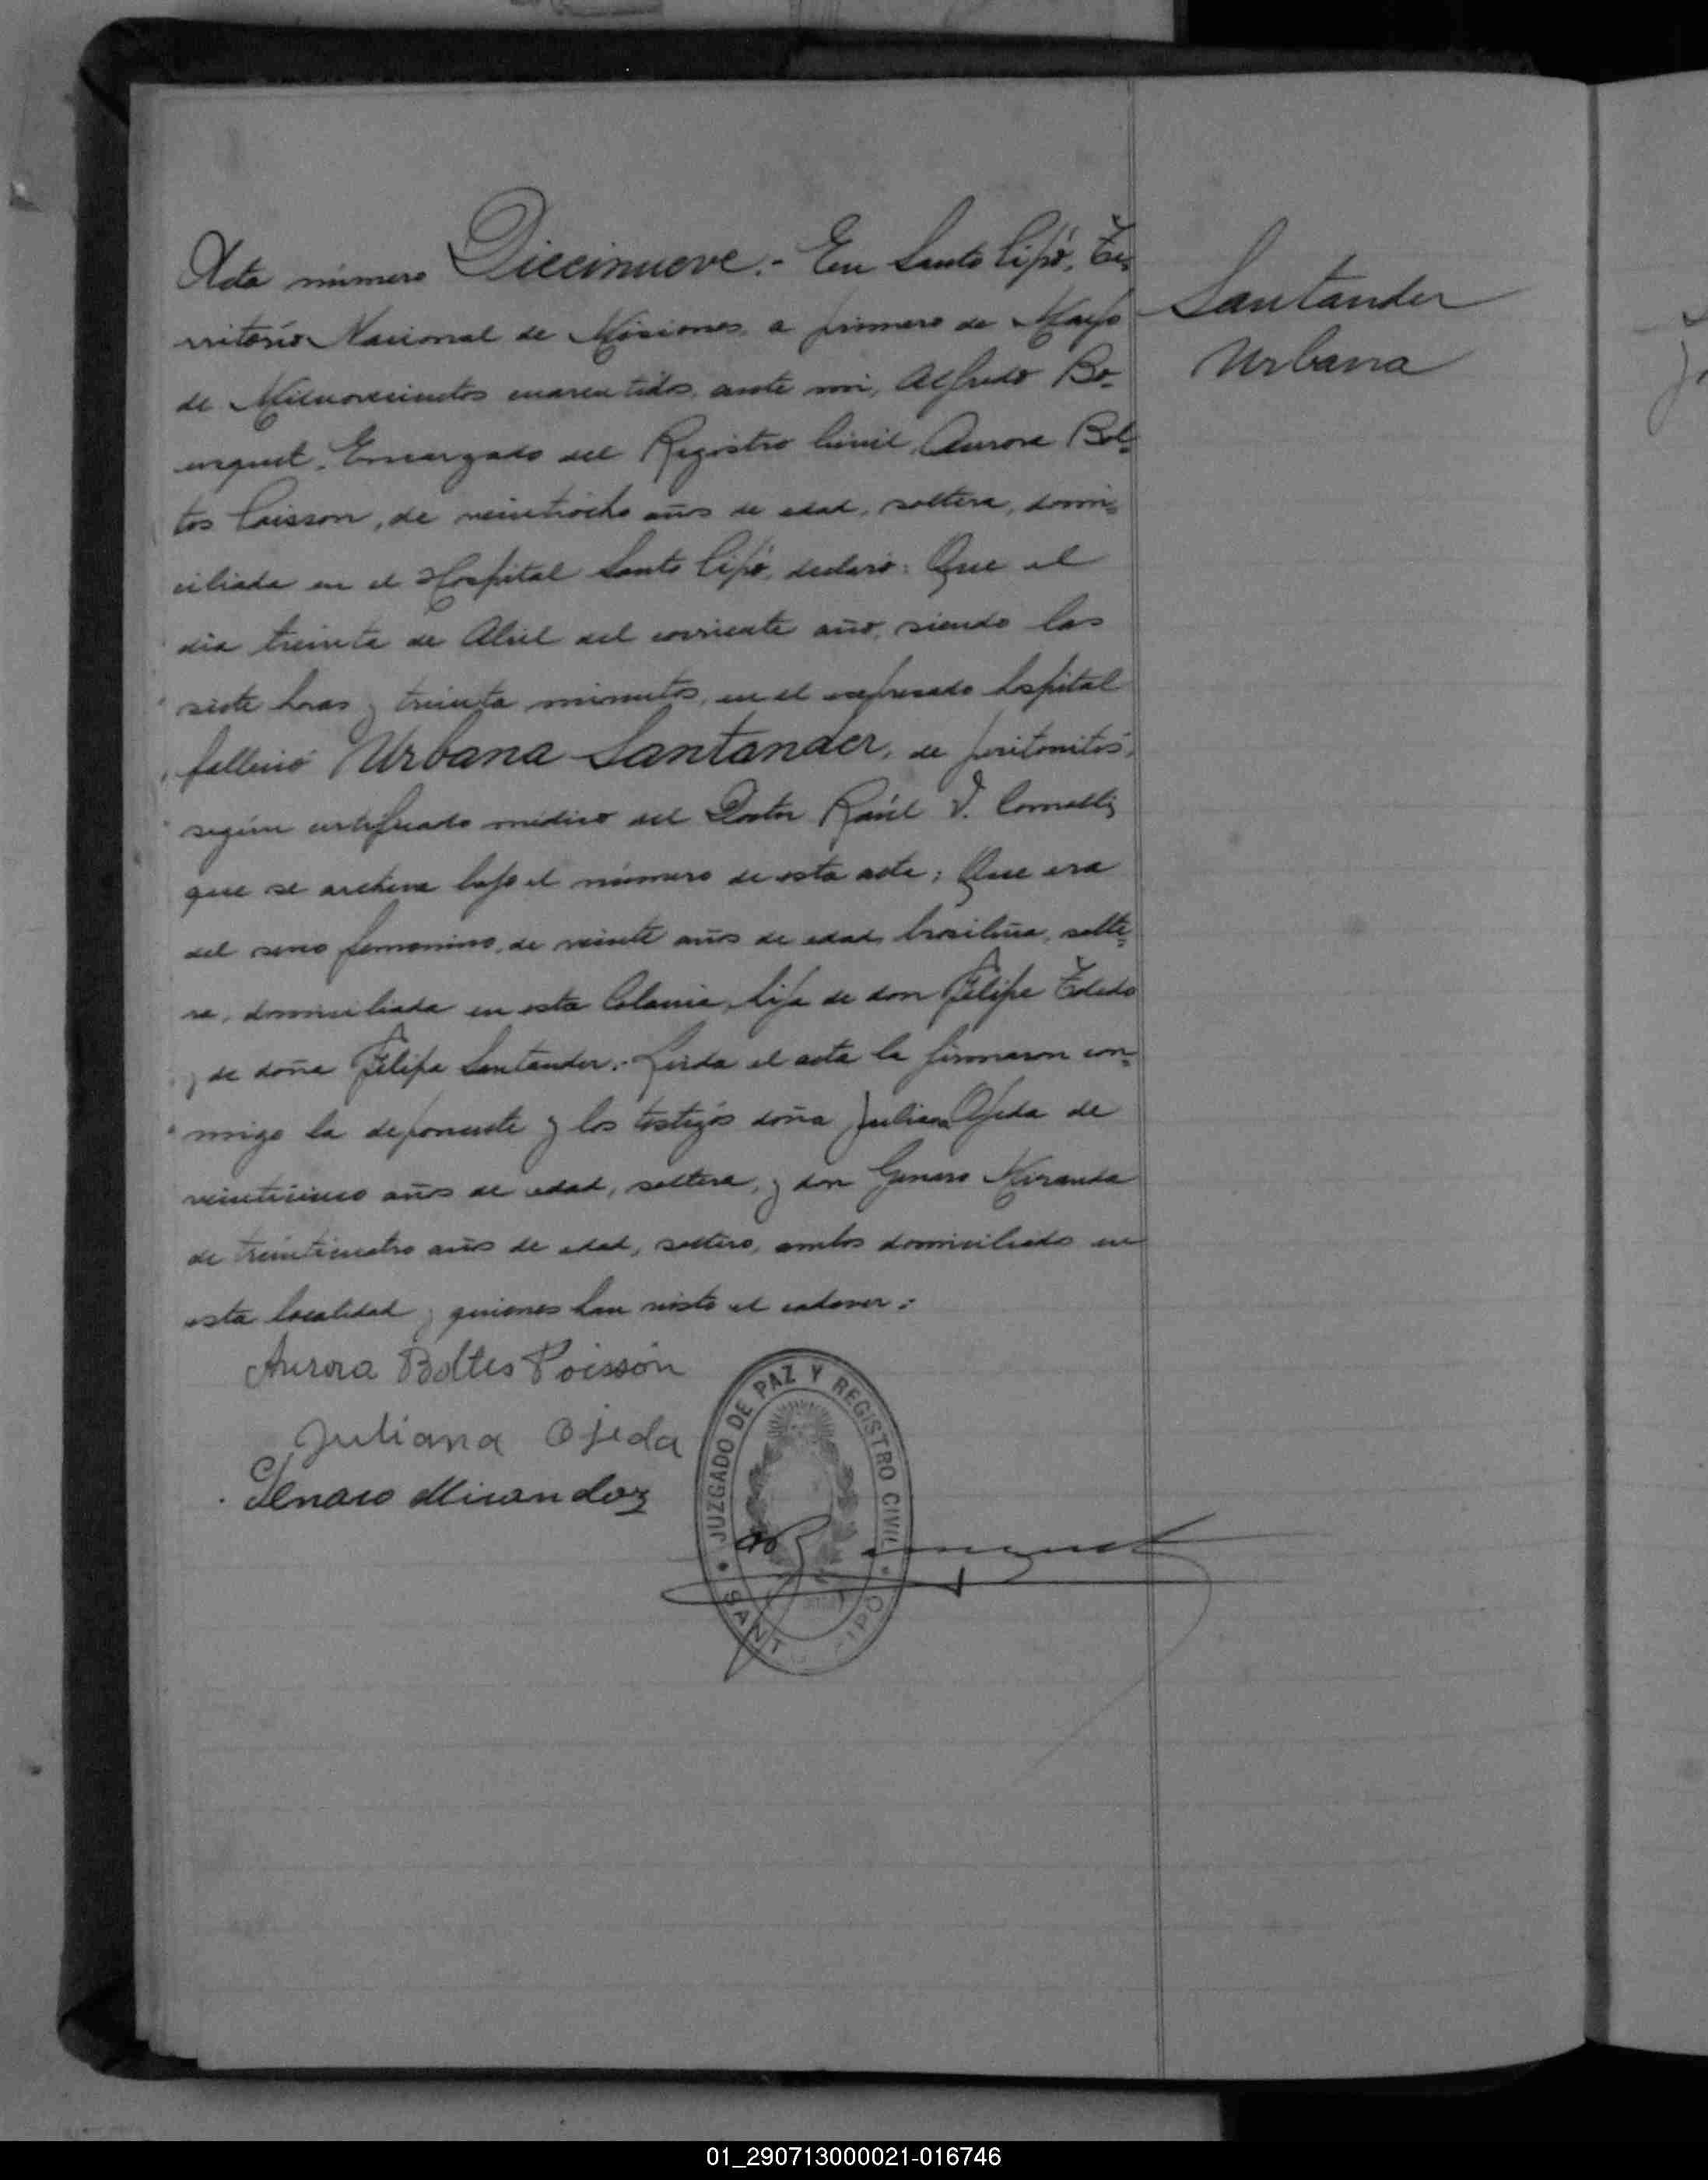 Acta número Diecinueve.- En Santo Pipó, Te-
rritorio Nacional de Misiones, a primero de Mayo
de Milnovecientos cuarentidos, ante mi, Alfredo Bo-
urquet, Encargado del Registro Civil, Aurora Bol-
tos Poisson, de veintiocho años de edad, soltera, domi-
ciliada en el Hospital Santo Pipó, declaró: Que el
dia treinta de Abril del corriente año, siendo las
siete horas y treinta minutos, en el expresado hospital
falleció Urbana Santander, de peritonitis,
según certificado médico del Doctor Raúl V.
que se archiva bajo el número de esta acta; Que era
del sexo femenino, de veinte años de edad, brasileña, solte-
ra, domiciliada en esta Colonia, hija de don Felipe Toledo
y de doña Felipa Santander.- Leida el acta la firmaron con-
migo la deponente y los testigos doña Juliana Ojeda de
veinticinco años de edad, soltera, y don Genaro Miranda
de treinticuatro años de edad, soltero, ambos domiciliado en
esta localidad y quienes han visto el cadaver.-
Santander
Urbana
Aurora Boltes Poissón
Juliana Ojeda
Genaro Miranda
JUZGADO DE PAZ Y REGISTRO CIVIL
SANT IPÓ
01_290713000021-016746